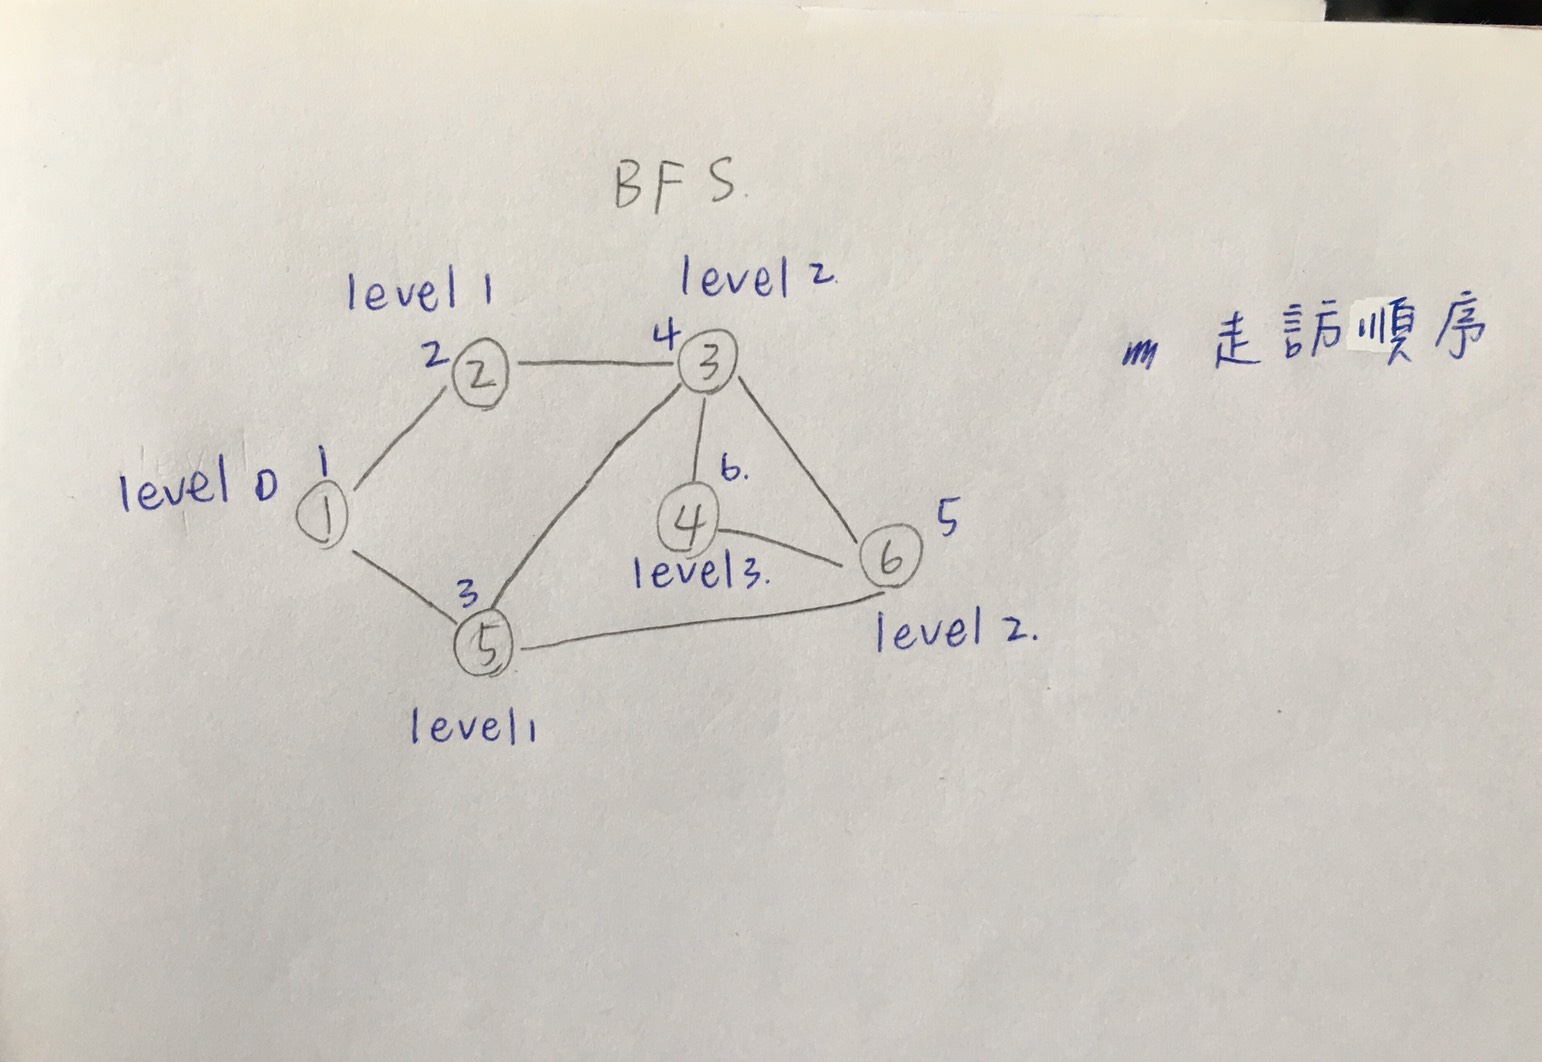 BFS.
level 1
level 2.
2
②
4
③
走訪順序
level 0
1
①
6.
④
level 3.
5
⑥
level 2.
3
⑤
level 1